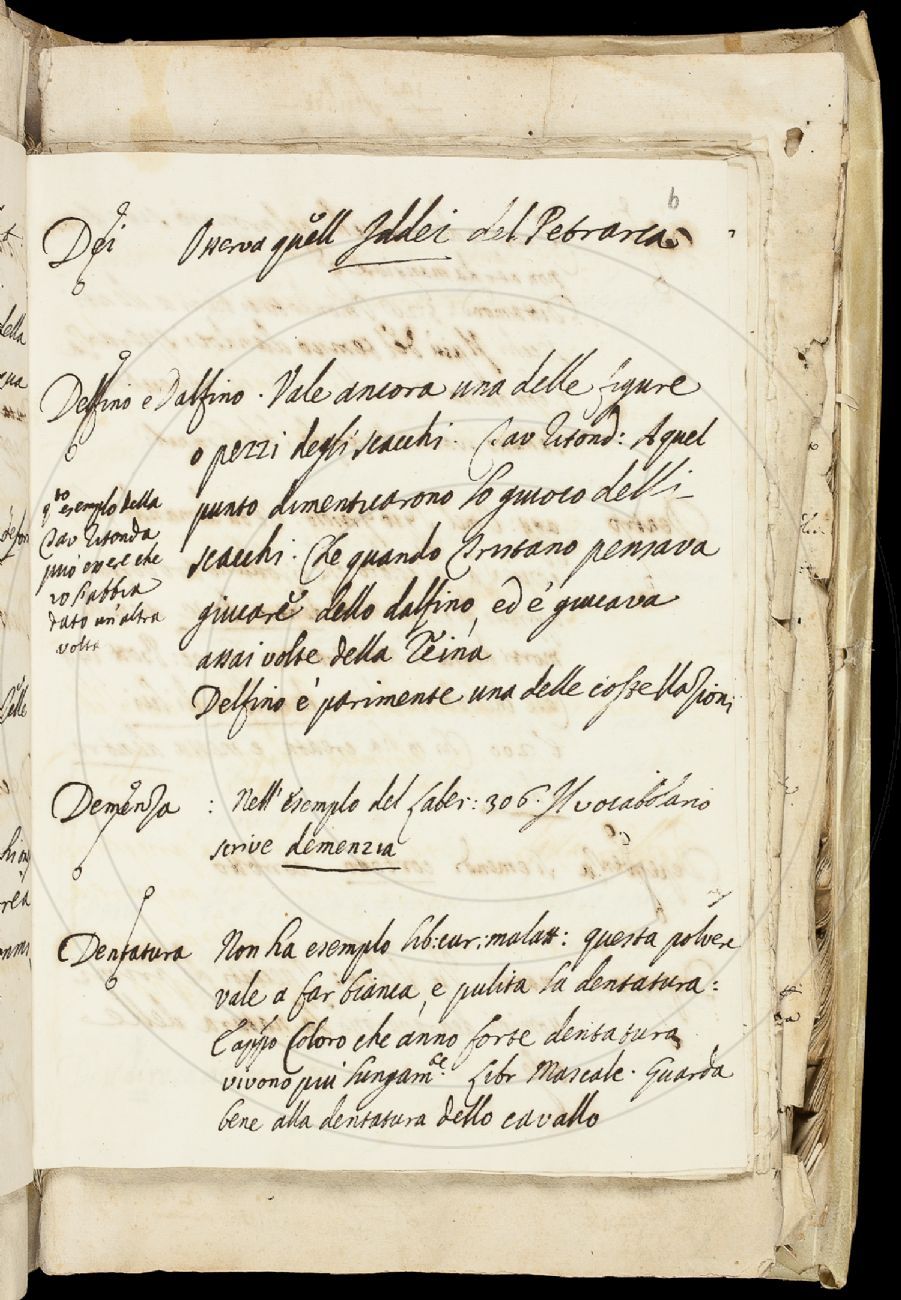 6
Dei Osserva quell Iddei del Petrarca
Delfino e Dalfino. Vale ancora una delle figure
o pezzi degli scacchi. Tav Ritond: A quel
punto dimenticarono lo giuoco delli
scacchi. Che quando Tristano pensava
giucare dello dalfino, ed e' giucava
assai volte della Reina
Delfino è parimente una delle costellazioni
q.to esemplo della
Tav Ritonda
può essere che
io l'abbia
dato un'altra
volta
Demenza : Nell'esemplo del Laber: 306. Il vocabolario
scrive demenzia
Dentatura Non ha esemplo lib: cur: malatt: questa polvere
vale a far bianca, e pulita la dentatura:
E appo Coloro che ànno forte dentatura
vivono più lungam.te Libr Mascalc. Guarda
bene alla dentatura dello cavallo